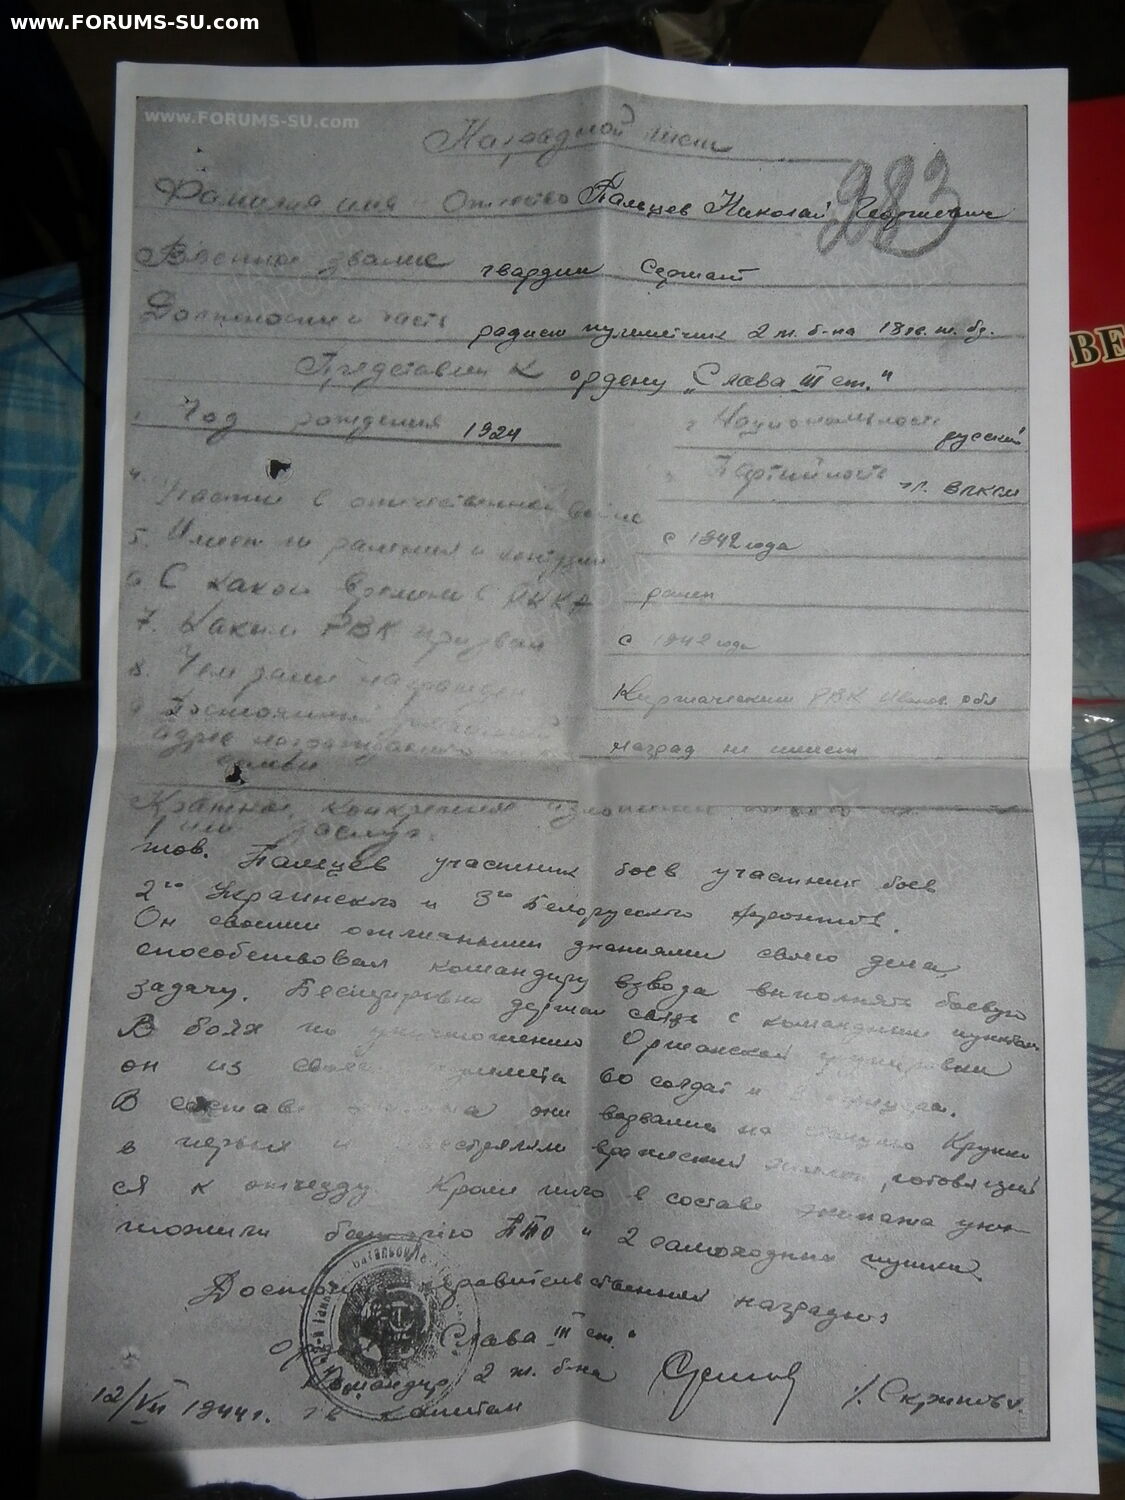 www.FORUMS-SU.com
www.FORUMS-SU.com
Наградной лист
283
Фамилия имя Отчество Пальцев Николай Георгиевич
Военное звание гвардии Сержант
Должность и часть радист пулеметчик 2 т. б-на 18 гв. т. бр.
Представлен к ордену „Слава III ст."
1. Год рождения 1924
2 Национальность русский
3 Партийность чл. ВЛКСМ
4. Участие в отечественной войне с 1942 года
5. Имеет ли ранения и контузии ранен
6 С какого времени в РККА с 1942 года
7. Каким РВК призван Киржаческим РВК Иванов. обл
8. Чем ранее награжден наград не имеет
9 Постоянный домашний
адрес награждаемого
семьи
Краткое, конкретное изложение
заслуг.
тов. Пальцев участник боев участник боев
2го Украинского и 3го Белорусского фронтов.
Он своими отличными знаниями своего дела
способствовал командиру взвода выполнять боевую
задачу. Бесперебойно держал связь с командным пунктом
В боях по уничтожению Оршанской группировки
он из своего пулемета 60 солдат и офицера.
В составе они ворвались на станцию Крупки
в первых и расстреляли вражеский эшелон, готовящий
ся к отъезду Кроме того в составе экипажа унич
тожили батарею ПТО и 2 самоходных пушки.
Достоин правительственной награды
Слава III ст."
Командир 2 т. б-на
12/VII 1944 г. гв капитан